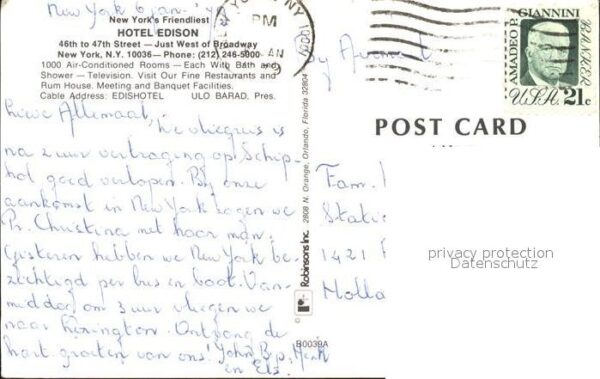 New York 6 jan.
New York's Friendliest
HOTEL EDISON
46th to 47th Street — Just West of Broadway
New York, N.Y. 10036 — Phone: (212) 246-5000
1000 Air-Conditioned Rooms — Each With Bath and
Shower — Television. Visit Our Fine Restaurants and
Rum House. Meeting and Banquet Facilities.
Cable Address: EDISHOTEL ULO BARAD, Pres.
Lieve Allemaal,
De vliegreis is
na 2 uur vertraging op Schip-
hol goed verlopen. Bij onze
aankomst in New York zagen we
Pr. Christina met haar man.
Gisteren hebben we New York be-
zichtigd per bus en boot. Van-
middag om 3 uur vliegen we
naar . Ontvang de
hart. groeten van ons! John, Bep, Henk
en Els.
NY
PM
Robinsons Inc. 2808 N. Orange, Orlando, Florida 32804
B0039A
AMADEO P. GIANNINI
BANKER
U.S.A. 21c
By
POST CARD
Fam.
Stati
1421
Holla
privacy protection
Datenschutz